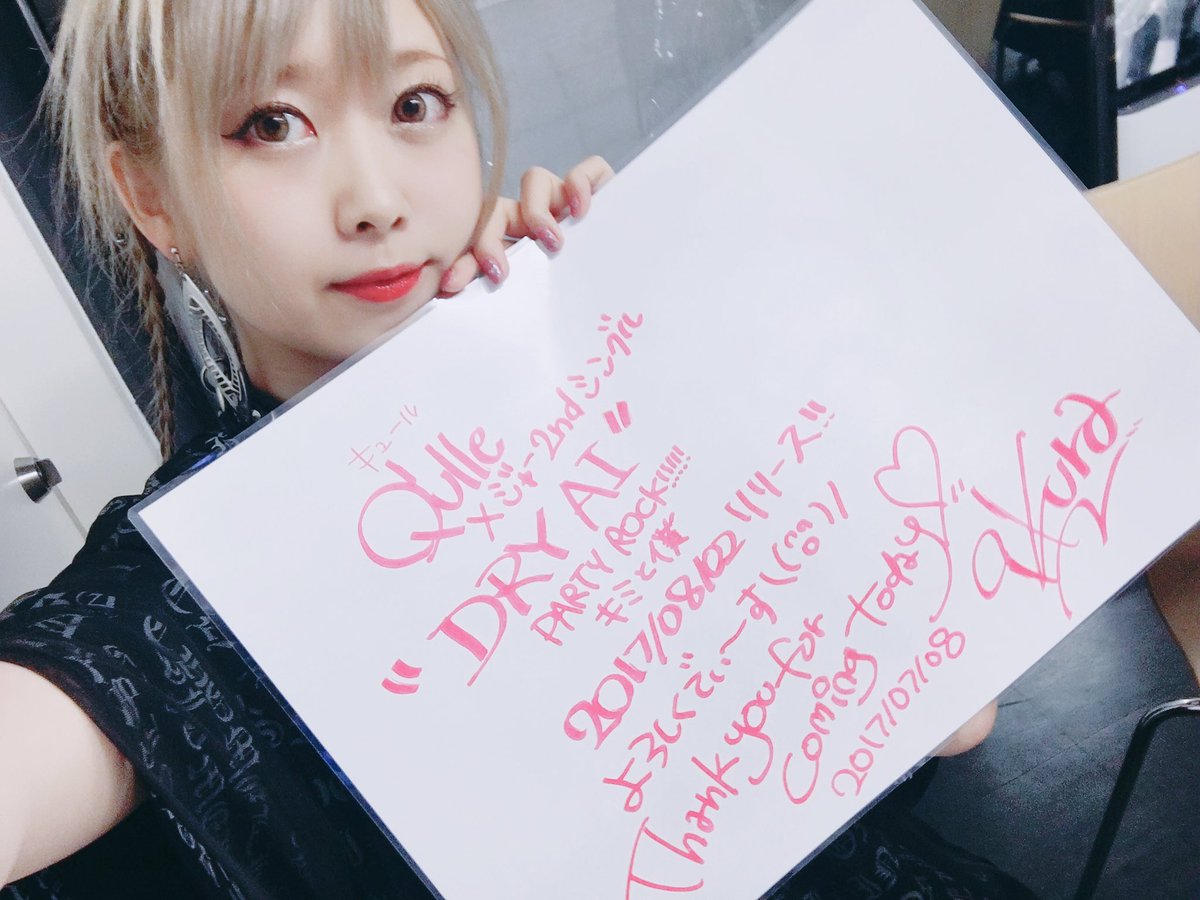 キュール
Qulle
メジャー2ndシングル
"DRY AI"
PARTY ROCK!!!!!
キミと僕
2017/08/02リリース!!
よろしくでぃーす\(^o^)/
Thank you for
coming today♡
2017/07/08